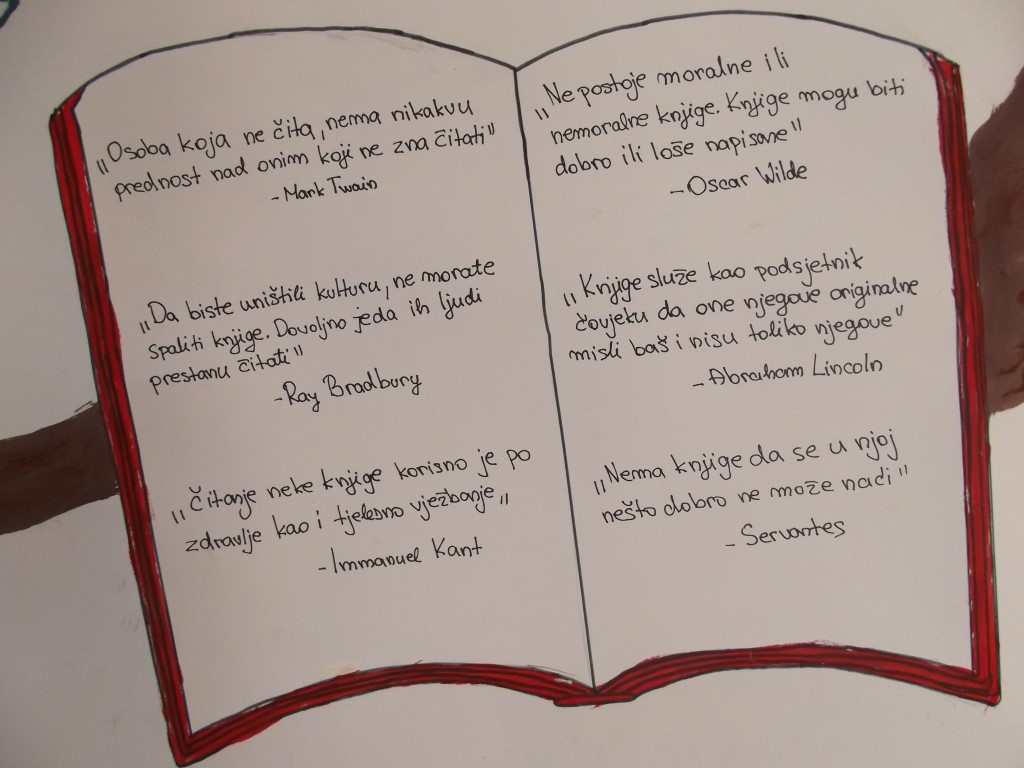 „Osoba koja ne čita, nema nikakvu
prednost nad onim koji ne zna čitati"
- Mark Twain
„Da biste uništili kulturu, ne morate
spaliti knjige. Dovoljno je da ih ljudi
prestanu čitati"
- Ray Bradbury
„Čitanje neke knjige korisno je po
zdravlje kao i tjelesno vježbanje„
- Immanuel Kant
„Ne postoje moralne ili
nemoralne knjige. Knjige mogu biti
dobro ili loše napisane"
- Oscar Wilde
„Knjige služe kao podsjetnik
čovjeku da one njegove originalne
misli baš i nisu toliko njegove"
- Abraham Lincoln
„Nema knjige da se u njoj
nešto dobro ne može naći"
- Servantes